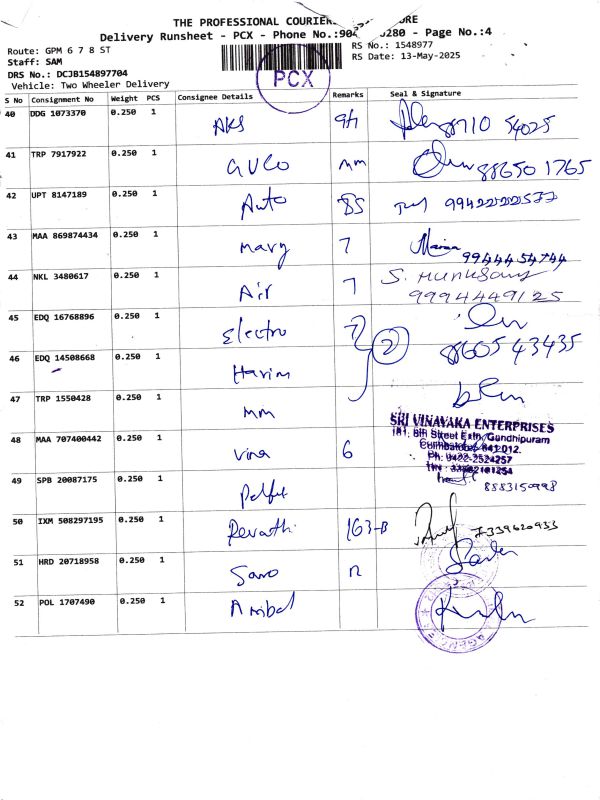 THE PROFESSIONAL COURIER
Delivery Runsheet - PCX - Phone No.:90 0280 - Page No.:4
Route: GPM 6 7 8 ST
RS No.: 1548977
Staff: SAM
RS Date: 13-May-2025
DRS No.: DCJB154897704
Vehicle: Two Wheeler Delivery
PCX
S No Consignment No Weight PCS Consignee Details Remarks Seal & Signature
40 DDG 1073370 0.250 1 AKS 54025
41 TRP 7917922 0.250 1 mm 886501765
42 UPT 8147189 0.250 1 Auto 85
43 MAA 869874434 0.250 1 mary 7
44 NKL 3480617 0.250 1 Air 7 9994449125
45 EDQ 16768896 0.250 1 Electro 7 2 8860543435
46 EDQ 14508668 0.250 1
47 TRP 1550428 0.250 1 mm
SRI VINAYAKA ENTERPRISES
181, 8th Street Extn, Gundhipuram
Coimbatore 641 012.
Ph: 0422-2524257
48 MAA 707400442 0.250 1 vina 6
49 SPB 20087175 0.250 1
50 IXM 508297195 0.250 1 Revathi 163-B 7339620933
51 HRD 20718958 0.250 1
52 POL 1707490 0.250 1